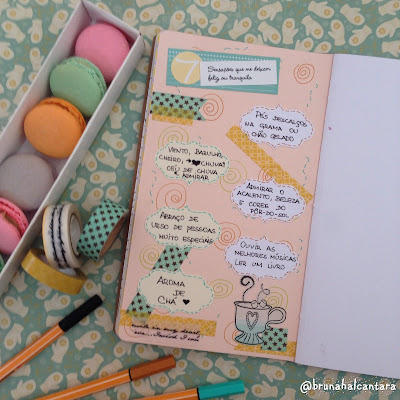 7
Sensações que me deixam
feliz ou tranquila
Pés descalços
na grama ou
chão gelado
Vento, barulho,
cheiro, → ♥ chuva!
céu de chuva
admirar
Admirar o
acalento, beleza
e cores do
pôr-do-sol
Abraço de
urso de pessoas
muito especiais
Ouvir as
melhores músicas
ler um livro
Aroma
de
chá ♥
@brunahalcantara